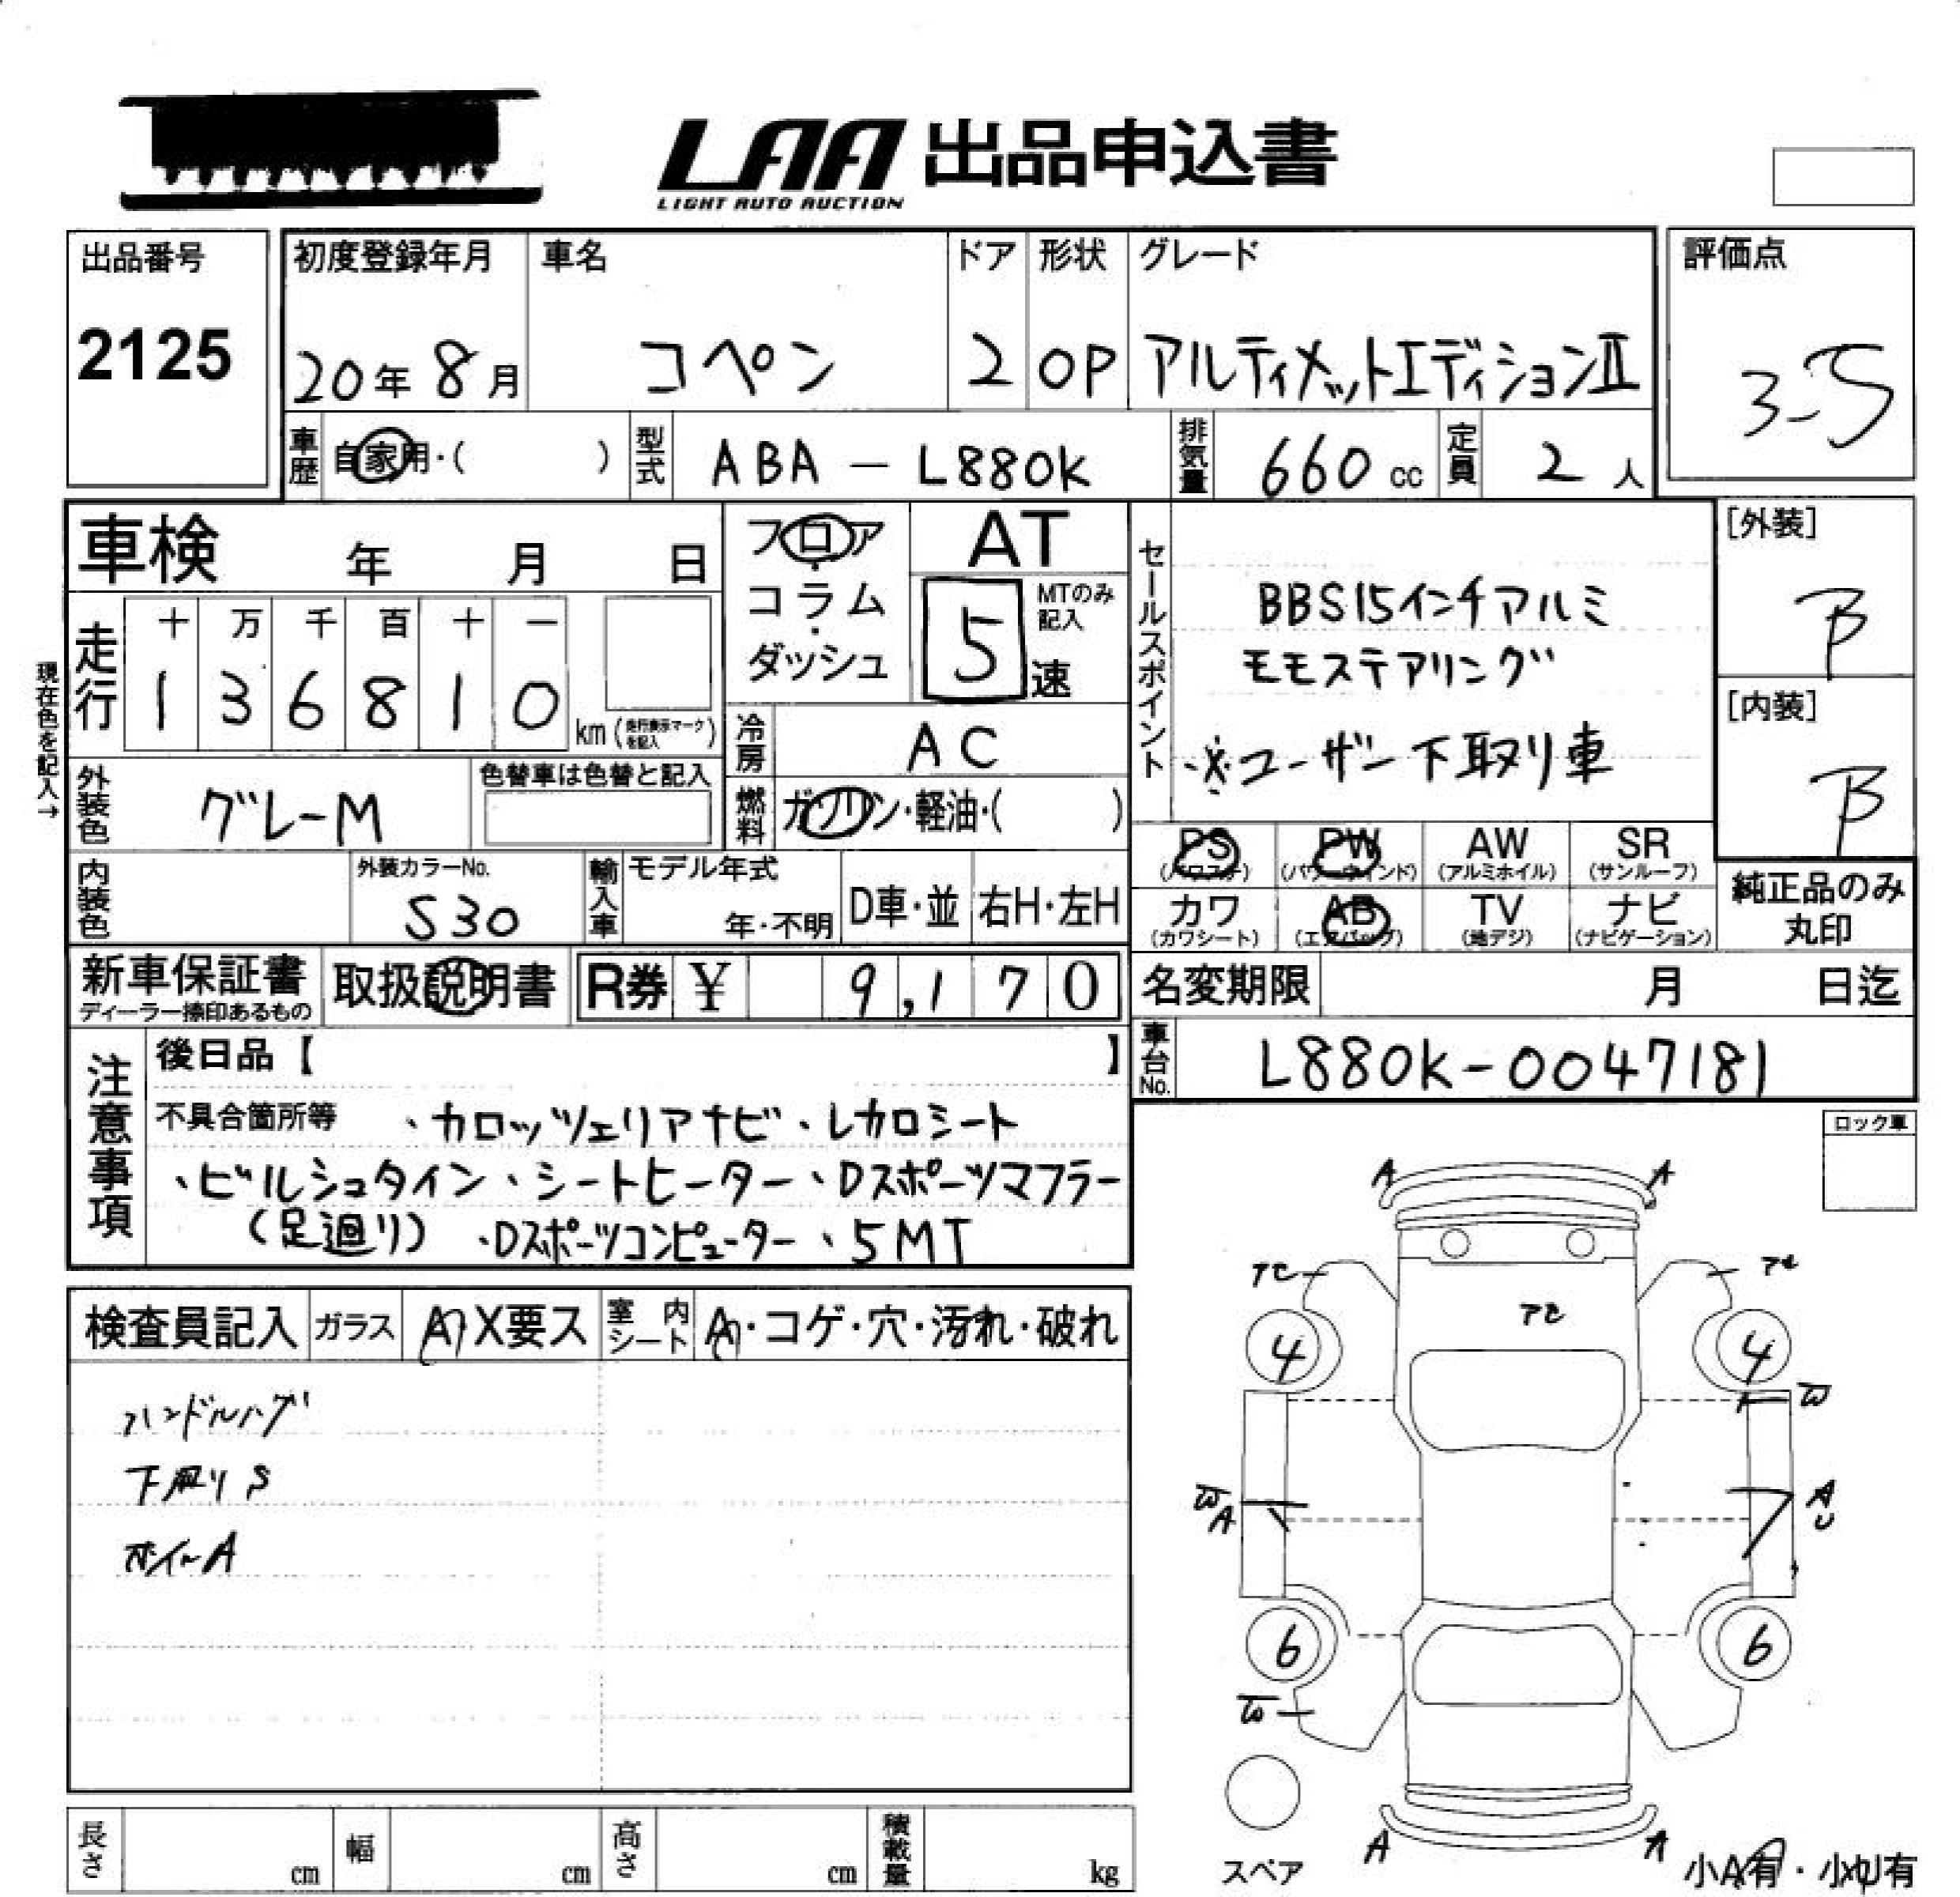 LAA 出品申込書
LIGHT AUTO AUCTION
出品番号
2125
初度登録年月
20年 8月
車名
コペン
ドア
2
形状
OP
グレード
アルティメットエディションII
評価点
3-5
車歴 自家用・( )
型式 ABA-L880K
排気量 660 cc
定員 2 人
車検 年 月 日
フロア・コラム・ダッシュ
AT
5 速
MTのみ記入
走行
十 万 千 百 十 一
1 3 6 8 1 0 km (走行表示マークを記入)
現在色を記入→
冷房 AC
燃料 ガソリン・軽油・( )
外装色 グレーM
色替車は色替と記入
内装色
外装カラーNo.
S30
輸入車
モデル年式
年・不明
D車・並
右H・左H
セールスポイント
BBS15インチアルミ
モモステアリング
※ユーザー下取り車
[外装]
B
[内装]
B
PS (パワステ)
PW (パワーウインド)
AW (アルミホイル)
SR (サンルーフ)
カワ (カワシート)
AB (エアバッグ)
TV (地デジ)
ナビ (ナビゲーション)
純正品のみ
丸印
新車保証書
ディーラー捺印あるもの
取扱説明書
R券 ¥ 9,170
名変期限 月 日迄
車台No. L880K-0047181
注意事項
後日品【 】
不具合箇所等 、カロッツェリアナビ、レカロシート
、ビルシュタイン、シートヒーター、Dスポーツマフラー
(足廻り) 、Dスポーツコンピューター、5MT
ロック車
検査員記入
ガラス A X要ス
室内シート A・コゲ・穴・汚れ・破れ
ハンドルハゲ
下廻りS
ホイルA
A A
アセ アセ
アセ
4 4
W
W
A
A
U
6 6
W
スペア
A A
小A有・小U有
長さ cm
幅 cm
高さ cm
積載量 kg